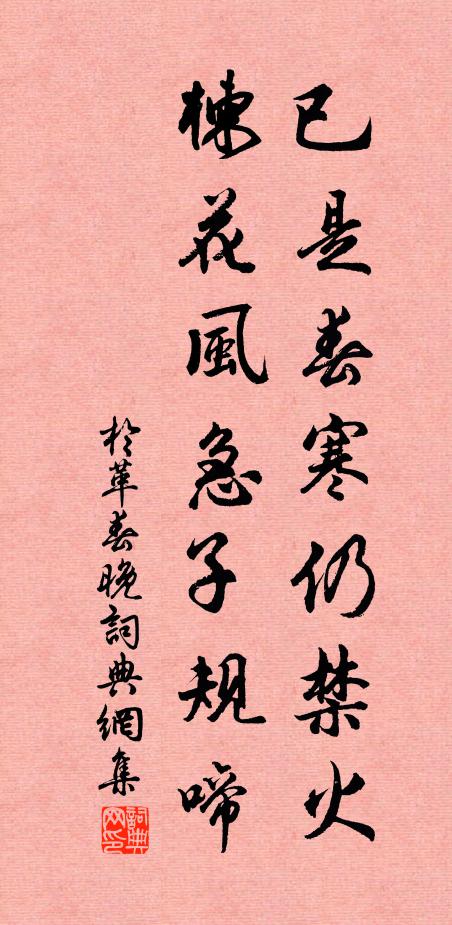 已是春寒仍禁火
楝花風急子規啼
於革春晚詞典網集
詞典网印